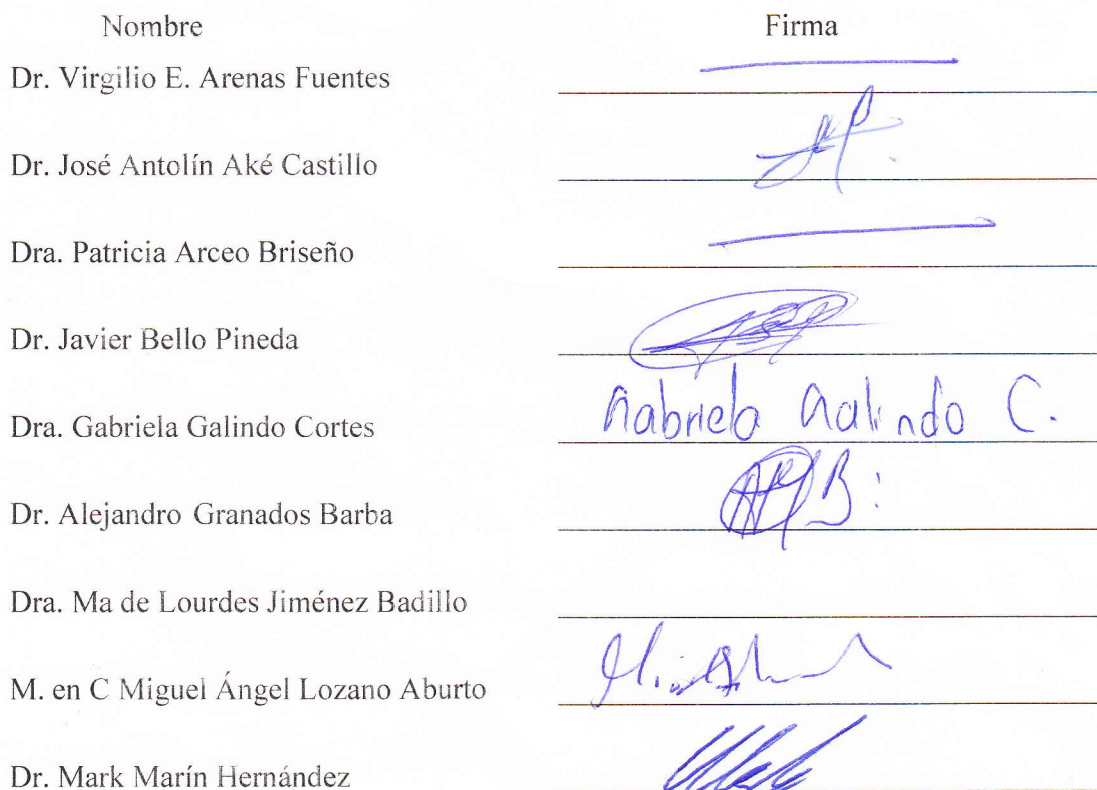 Nombre Firma
Dr. Virgilio E. Arenas Fuentes
Dr. José Antolín Aké Castillo
Dra. Patricia Arceo Briseño
Dr. Javier Bello Pineda
Dra. Gabriela Galindo Cortes Gabriela Galindo C.
Dr. Alejandro Granados Barba
Dra. Ma de Lourdes Jiménez Badillo
M. en C Miguel Ángel Lozano Aburto
Dr. Mark Marín Hernández